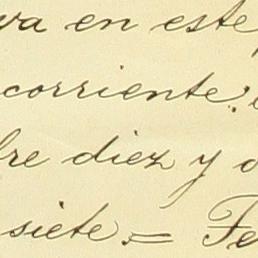 va en este
corriente.
bre diez y o
siete. = Fe